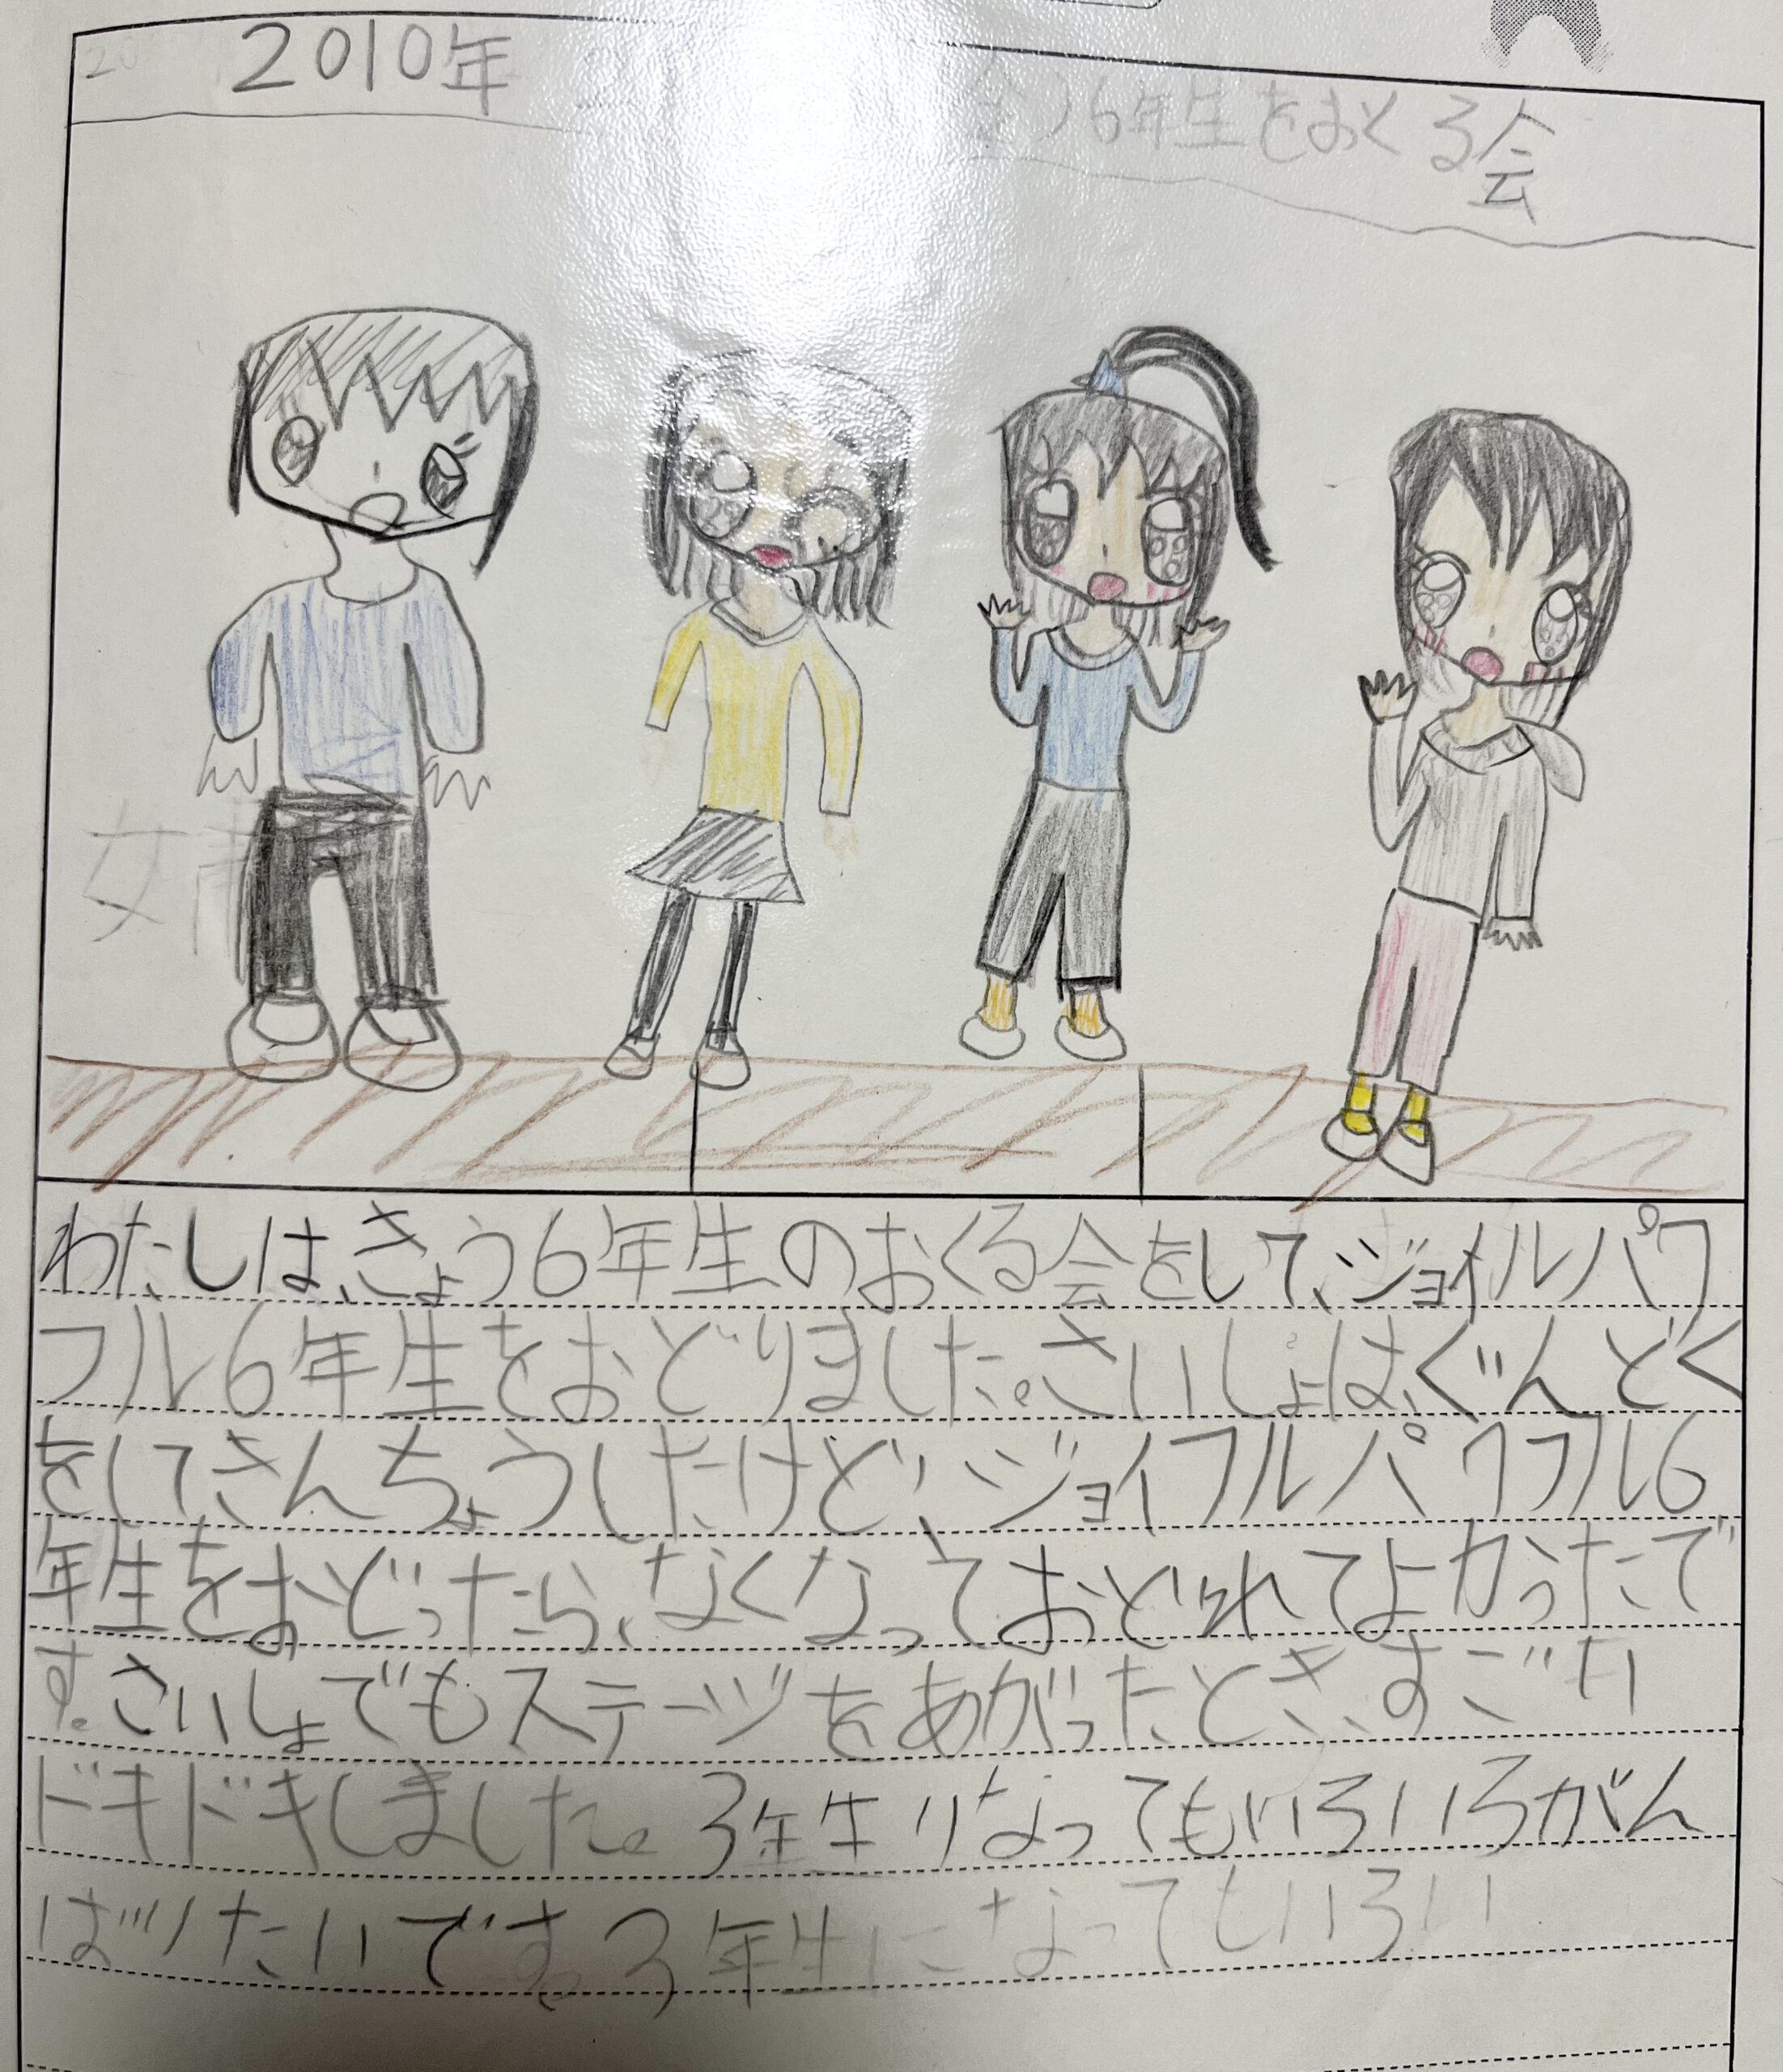 2010年
6年生をおくる会
わたしは、きょう6年生のおくる会をして、ジョイルパワ
フル6年生をおどりました。さいしょは、ぐんどく
をしてきんちょうしたけど、ジョイフルパワフル6
年生をおどったら、なくなっておどれてよかったで
す。さいしょでもステージをあがったとき、すごい
ドキドキしました。3年生になってもいろいろがん
ばりたいです。3年生になってもいろい